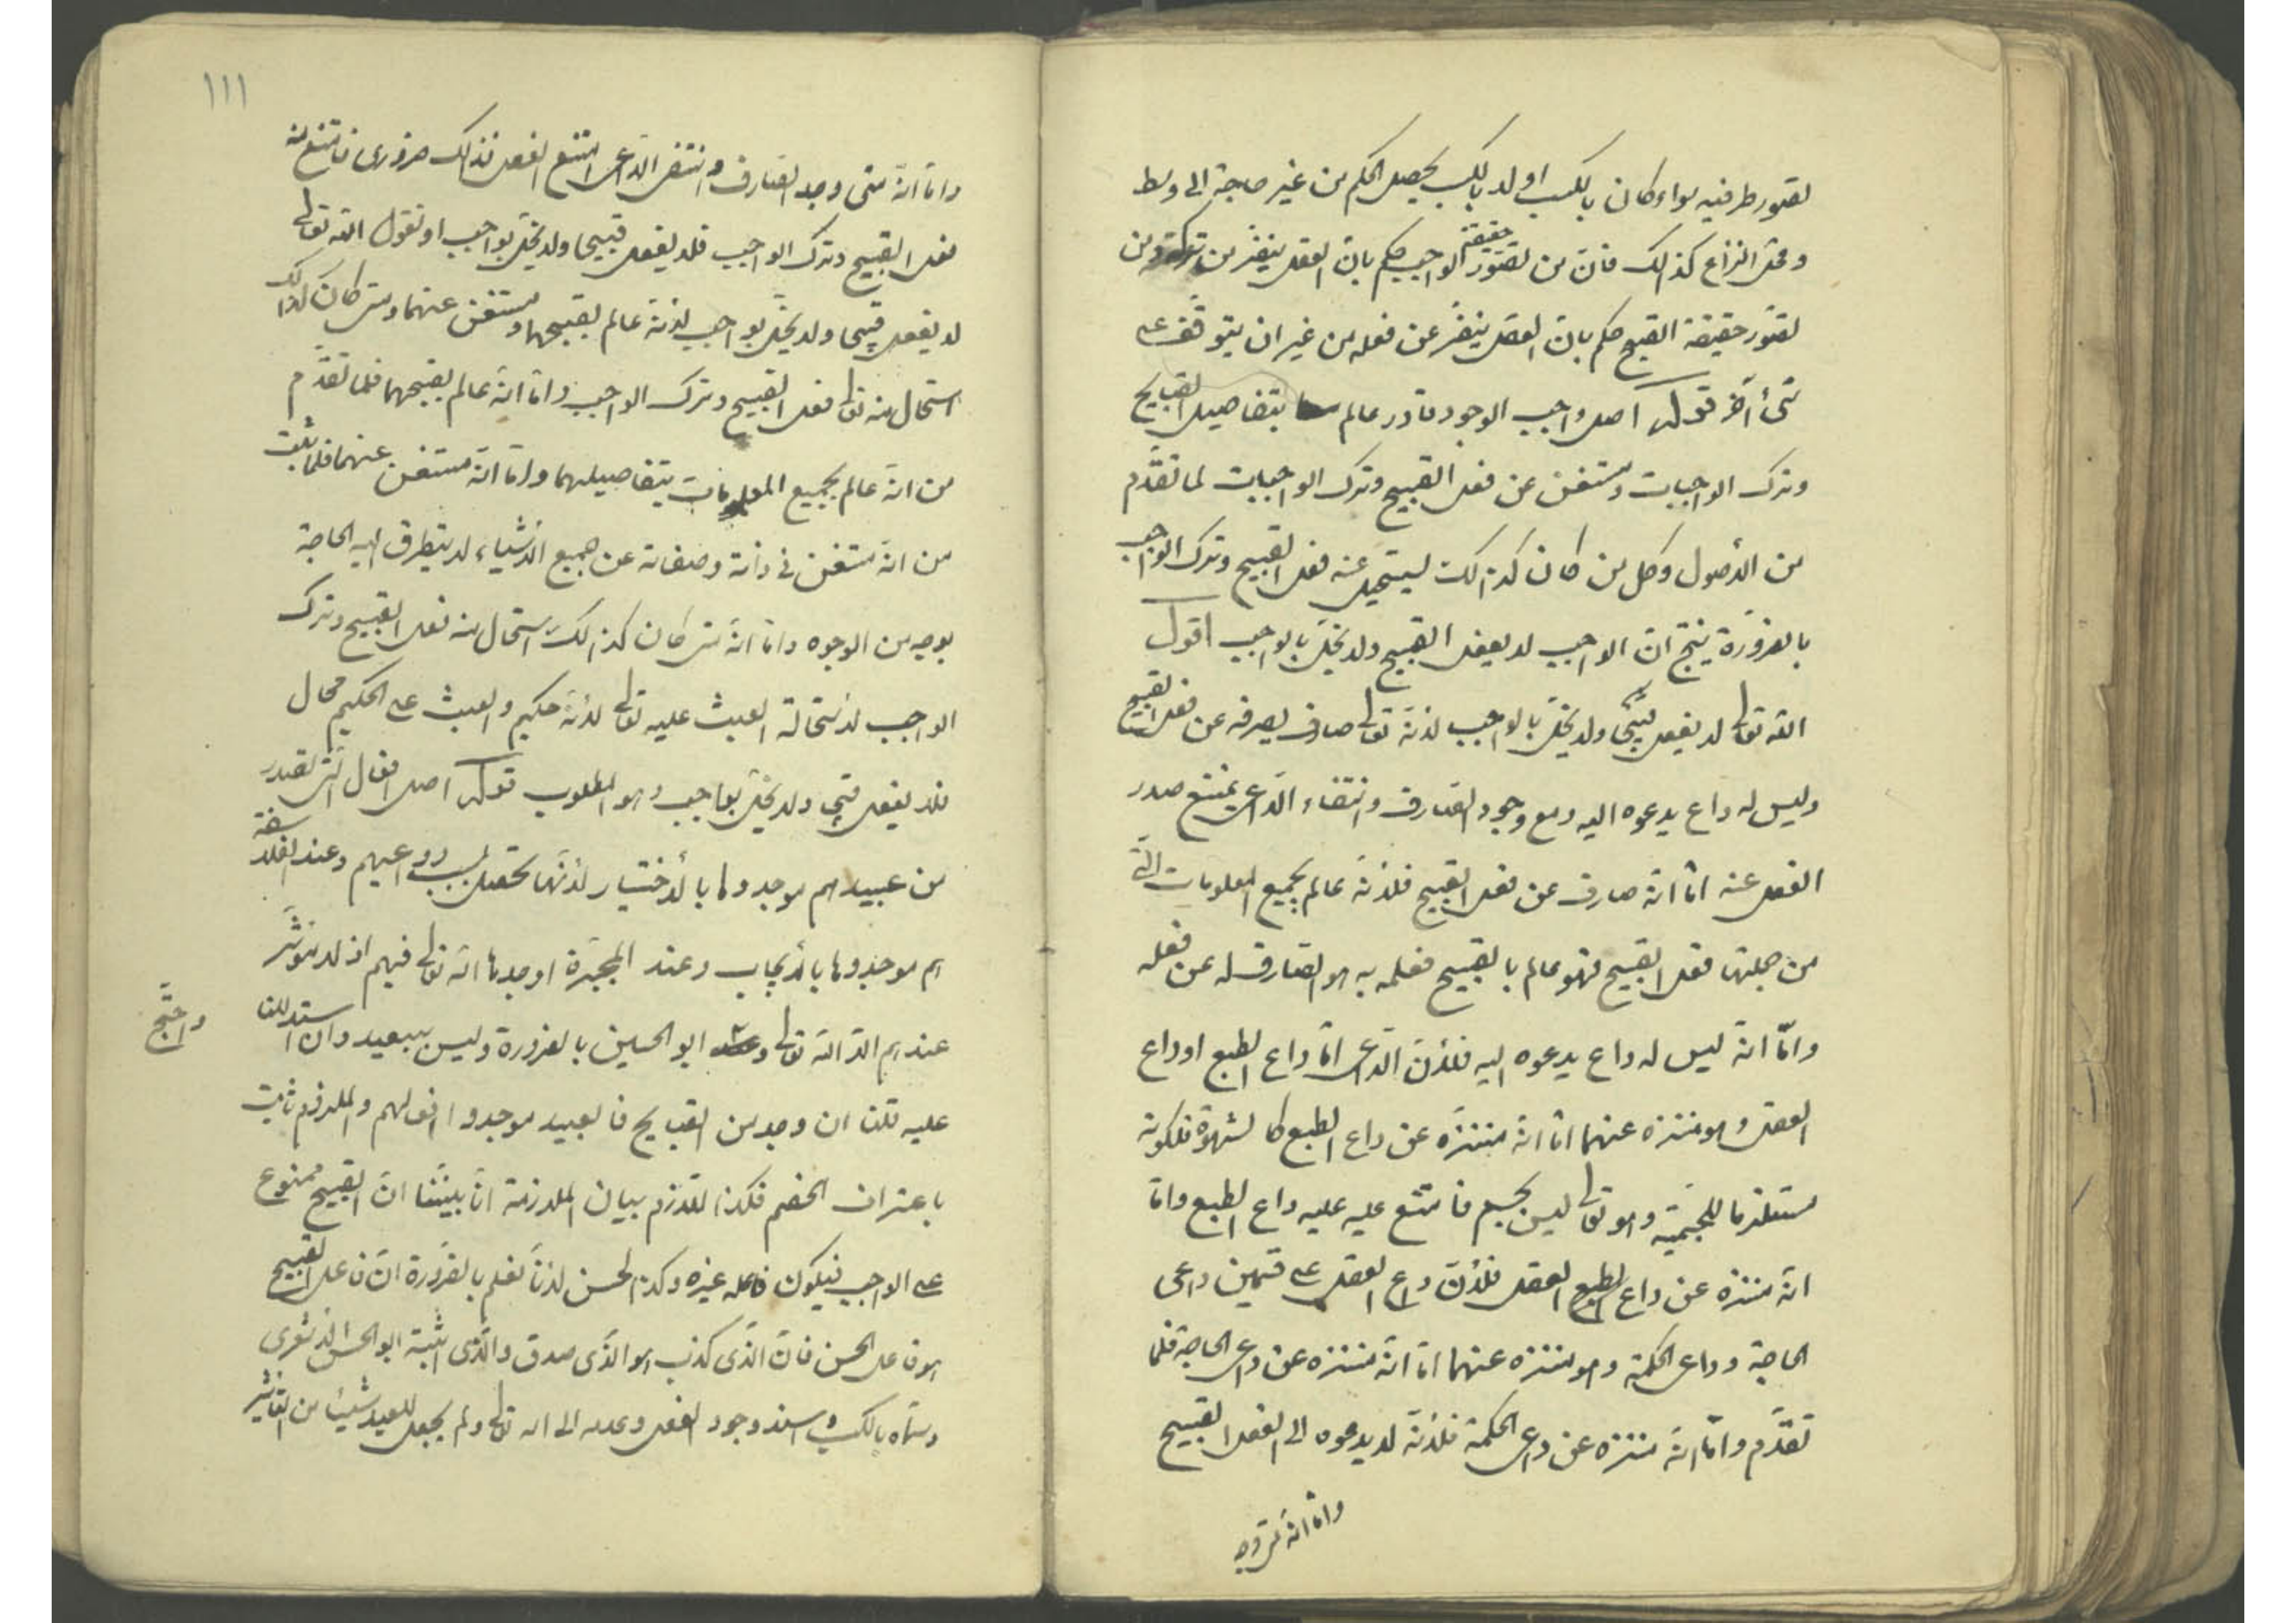 لتصور طرفيه سواء كان بالكسب او لا بالكسب يحصل الحكم من غير حاجة الى وسط
ومحل النزاع كذلك فانّ من تصوّر حقيقة الواجب حكم بانّ العقل ينفر من تركه ومن
تصوّر حقيقة القبيح حكم بانّ العقل ينفّر عن فعله من غير ان يتوقّف على
شئ آخر قوله اصل واجب الوجود قادر عالم بتفاصيل القبايح
وترك الواجبات ومستغن عن فعل القبيح وترك الواجبات لما تقدّم
من الأصول وكل من كان كذلك يستحيل عنه فعل القبيح وترك الواجب
بالضرورة ينتج انّ الواجب لا يفعل القبيح ولا يخلّ بالواجب اقول
الله تعالى لا يفعل قبيحا ولا يخلّ بالواجب لانّه تعالى صارف يصرفه عن فعل القبيح
وليس له داع يدعوه اليه ومع وجود الصّارف وانتفاء الدّاعى يمتنع صدر
الفعل عنه امّا انّه صارف عن فعل القبيح فلأنّه عالم بجميع المعلومات الّتى
من جملتها فعل القبيح فهو عالم بالقبيح فعلمه به هو الصّارف له عن فعله
وامّا انّه ليس له داع يدعوه اليه فلأنّ الدّاعى امّا داع الطبع او داع
العقل وهو منتزه عنهما امّا انّه منتزّه عن داع الطبع كالشهوة فلكونه
مستلزما للجسميّة وهو تعالى ليس بجسم فامتنع عليه عليه داع الطبع وامّا
انّه منتزه عن داع الطبع العقل فلأنّ داع العقل على قسمين داعى
الحاجة وداعى الحكمة وهو منتزه عنهما امّا انّه منتزه عن داعى الحاجة فلما
تقدّم وامّا انّه منتزه عن داعى الحكمة فلأنّه لا يدعوه الى الفعل القبيح
وامّا انّه متى وجد
١١١
وامّا انّه متى وجد الصّارف وانتفى الدّاعى امتنع الفعل فذلك ضرورى فامتنع منه
فعل القبيح وترك الواجب فلا يفعل قبيحا ولا يخلّ بواجب او نقول الله تعالى
لا يفعل قبيحا ولا يخلّ بواجب لانّه عالم بقبيحهما ومستغن عنهما ومتى كان كذلك
استحال منه تعالى فعل القبيح وترك الواجب وامّا انّه عالم بقبيحهما فلما تقدّم
من انّه عالم بجميع المعلومات بتفاصيلهما وامّا انّه مستغن عنهما فلما ثبت
من انّه مستغن فى ذاته وصفاته عن جميع الأشياء لا يتطرق اليه الحاجة
بوجه من الوجوه وامّا انّه متى كان كذلك استحال منه فعل القبيح وترك
الواجب لأستحالة العبث عليه تعالى لأنّه حكيم والعبث على الحكيم محال
فلا يفعل قبيحا ولا يخلّ بواجب وهو المطلوب قوله اصل افعال الّتى تصدر
من عبيد هم موجدوها بالأختيار لأنّها تحصل بحسب دواعيهم وعند الفلاسفة
هم موجدوها بالأيجاب وعند المجبّرة اوجدها الله تعالى فيهم اذ لا مؤثّر
عندهم الّا الله تعالى ابو الحسين بالضرورة وليس ببعيد وان استدللنا
واحتجّ
عليه قلنا ان وجد من القبايح فالعبيد موجدوا افعالهم والملزوم ثابت
باعتراف الخصم فكذا اللّازم بيان الملازمة انّا بيّنّا انّ القبيح ممنوع
على الواجب فيكون فاعله غيره وكذا الحسن لأنّا نعلم بالضّرورة انّ فاعل القبيح
هو فاعل الحسن فانّ الّذى كذب هو الّذى صدق والّذى اثبته ابو الحسن الأشعرى
وسمّاه بالكسب واسند وجود الفعل وعدمه الى الله تعالى ولم يجعل للعبد شيئا من التأثير